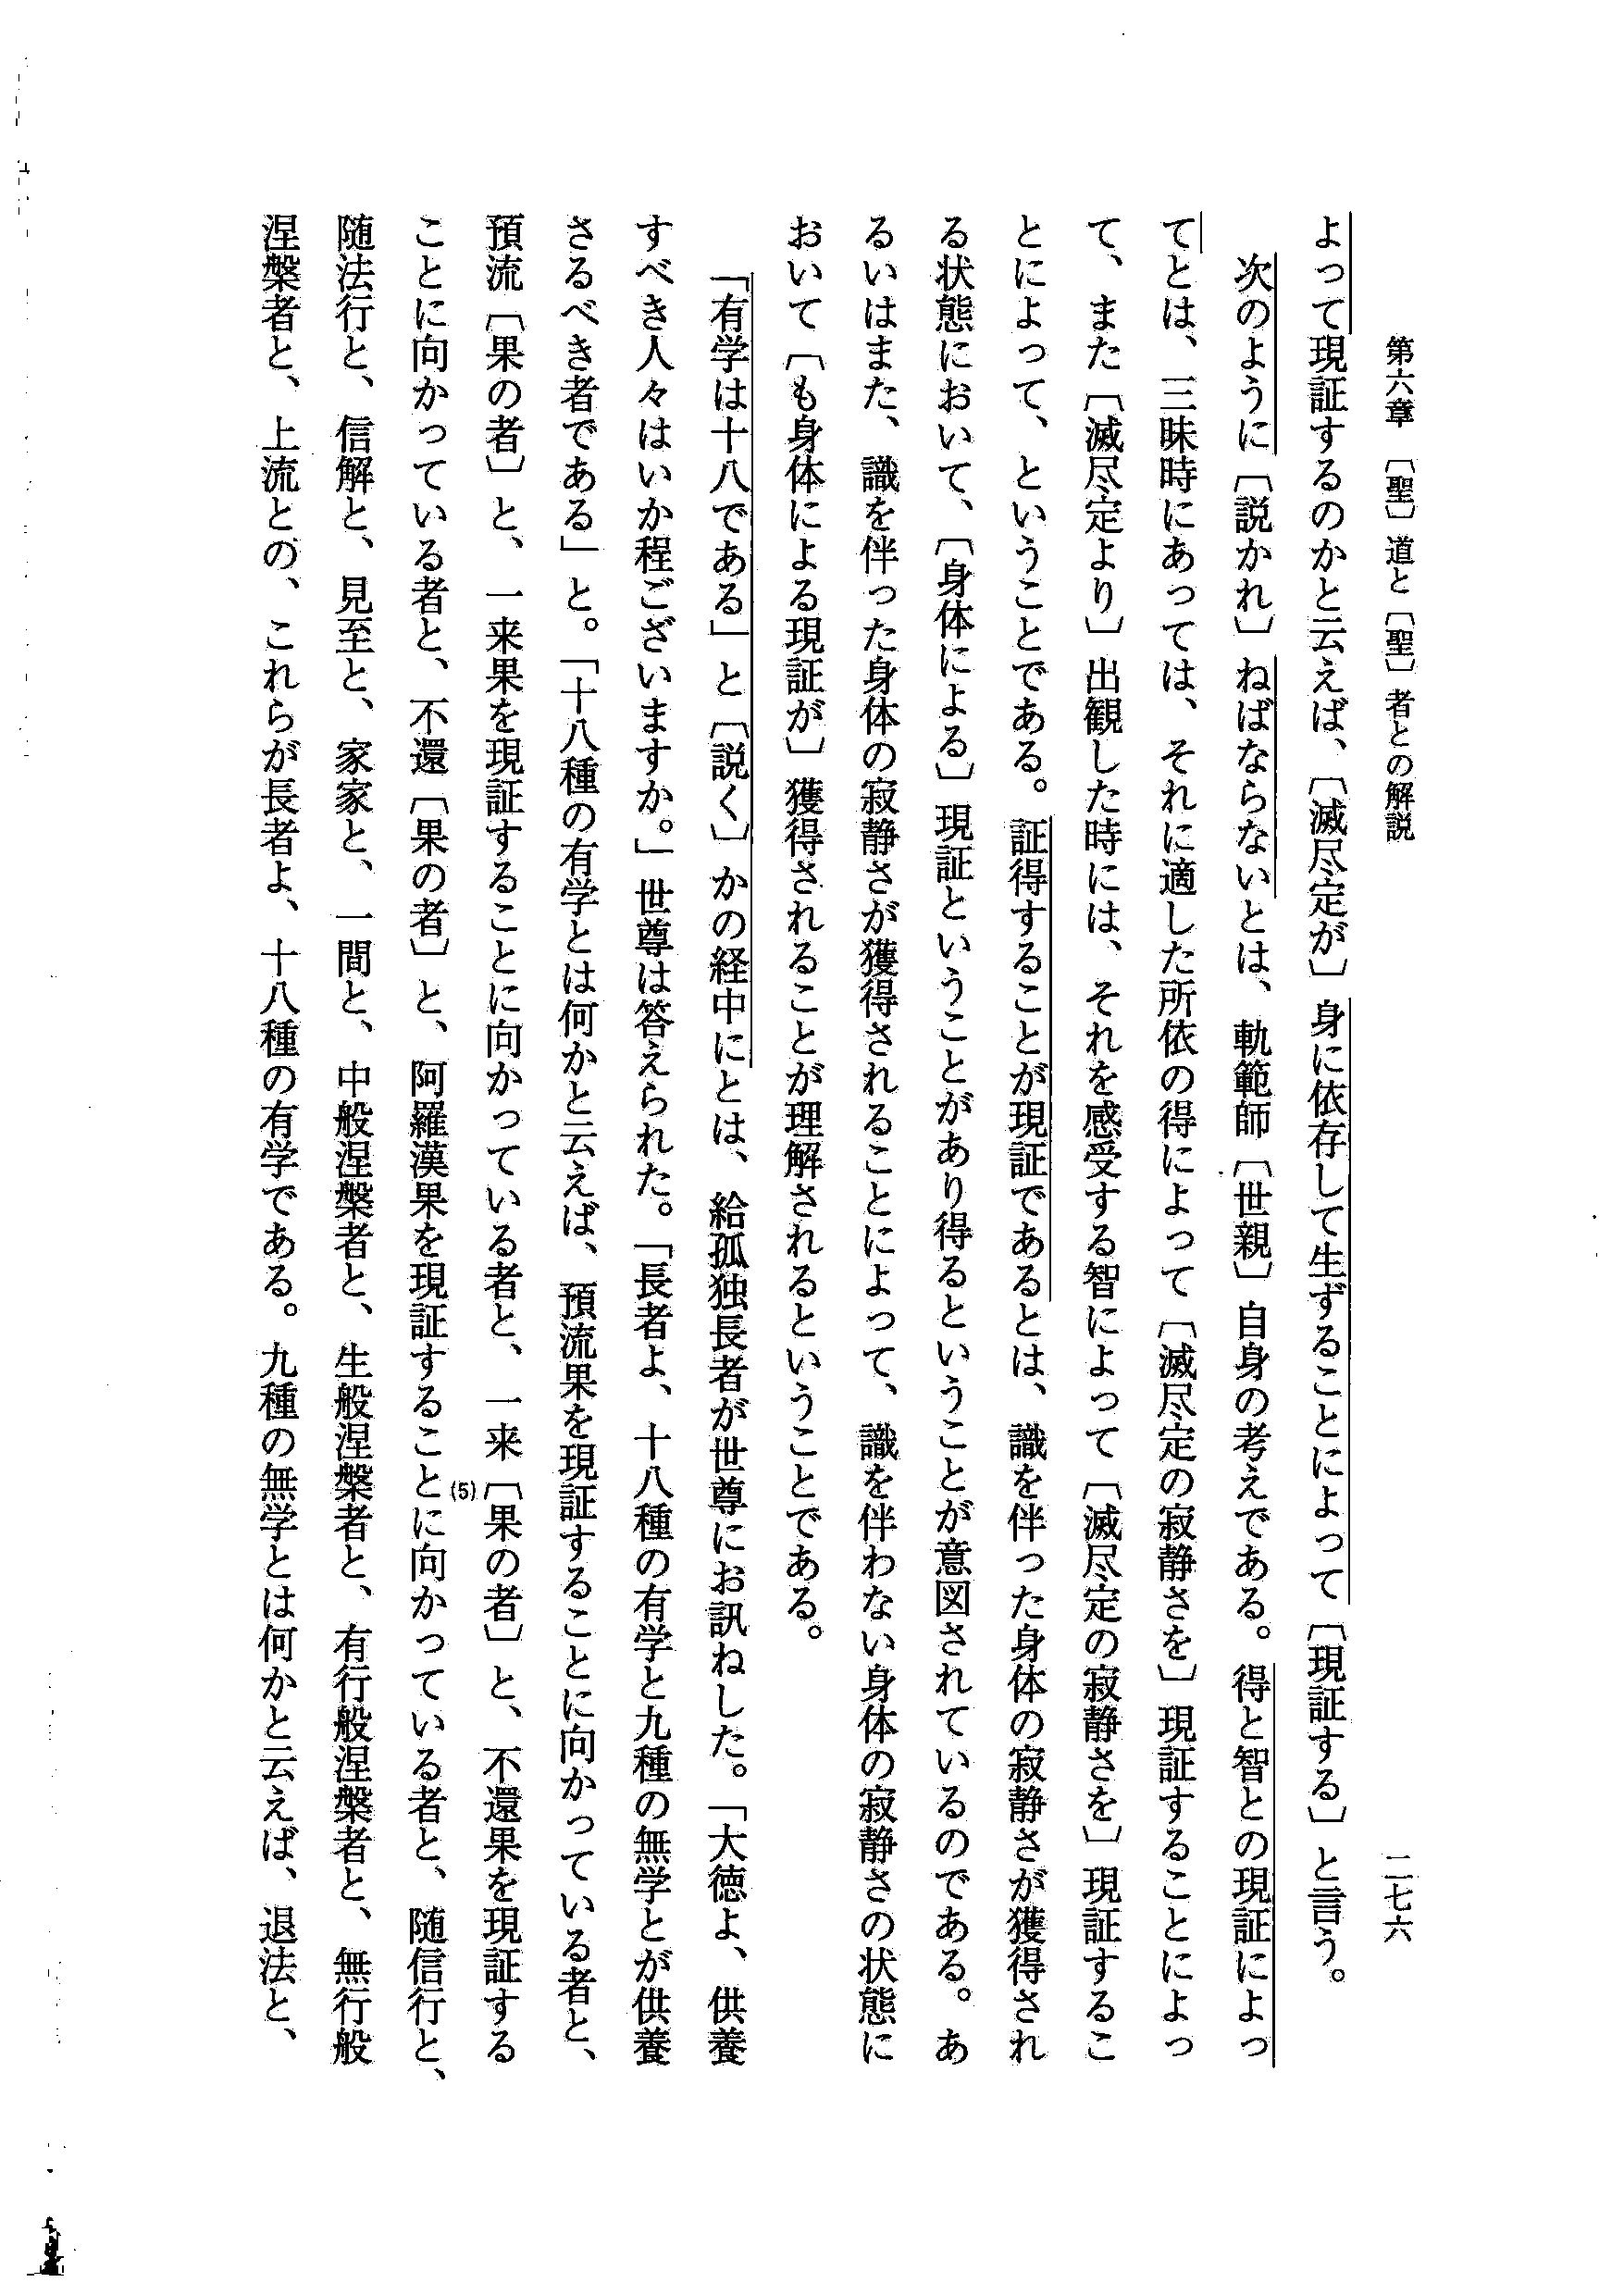 第六章　〔聖〕道と〔聖〕者との解説　二七六
よって現証するのかと云えば、〔滅尽定が〕身に依存して生ずることによって〔現証する〕と言う。
次のように〔説かれ〕ねばならないとは、軌範師〔世親〕自身の考えである。得と智との現証によっ
てとは、三昧時にあっては、それに適した所依の得によって〔滅尽定の寂静さを〕現証することによっ
て、また〔滅尽定より〕出観した時には、それを感受する智によって〔滅尽定の寂静さを〕現証するこ
とによって、ということである。証得することが現証であるとは、識を伴った身体の寂静さが獲得され
る状態において、〔身体による〕現証ということがあり得るということが意図されているのである。あ
るいはまた、識を伴った身体の寂静さが獲得されることによって、識を伴わない身体の寂静さの状態に
おいて〔も身体による現証が〕獲得されることが理解されるということである。
「有学は十八である」と〔説く〕かの経中にとは、給孤独長者が世尊にお訊ねした。「大徳よ、供養
すべき人々はいか程ございますか。」世尊は答えられた。「長者よ、十八種の有学と九種の無学とが供養
さるべき者である」と。「十八種の有学とは何かと云えば、預流果を現証することに向かっている者と、
預流〔果の者〕と、一来果を現証することに向かっている者と、一来〔果の者〕と、不還果を現証する
ことに向かっている者と、不還〔果の者〕と、阿羅漢果を現証することに向かっている者と、随信行と、
(5)
随法行と、信解と、見至と、家家と、一間と、中般涅槃者と、生般涅槃者と、有行般涅槃者と、無行般
涅槃者と、上流との、これらが長者よ、十八種の有学である。九種の無学とは何かと云えば、退法と、